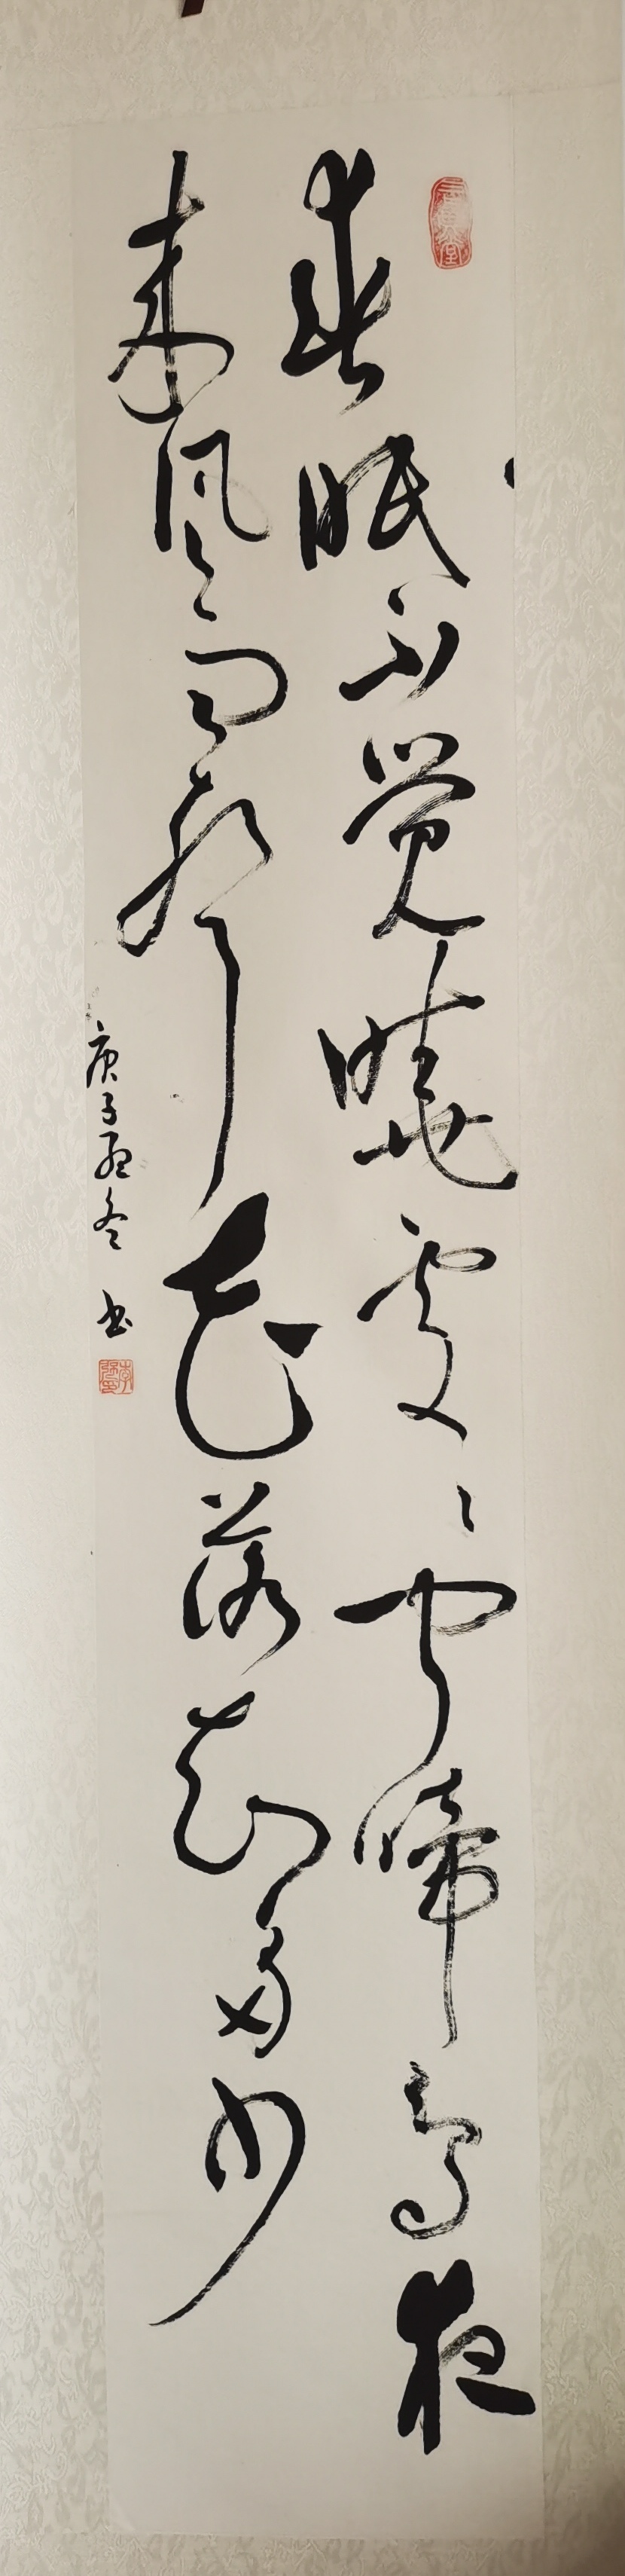 春眠不觉晓处处闻啼鸟夜
来风雨声花落知多少
庚子孟冬 书